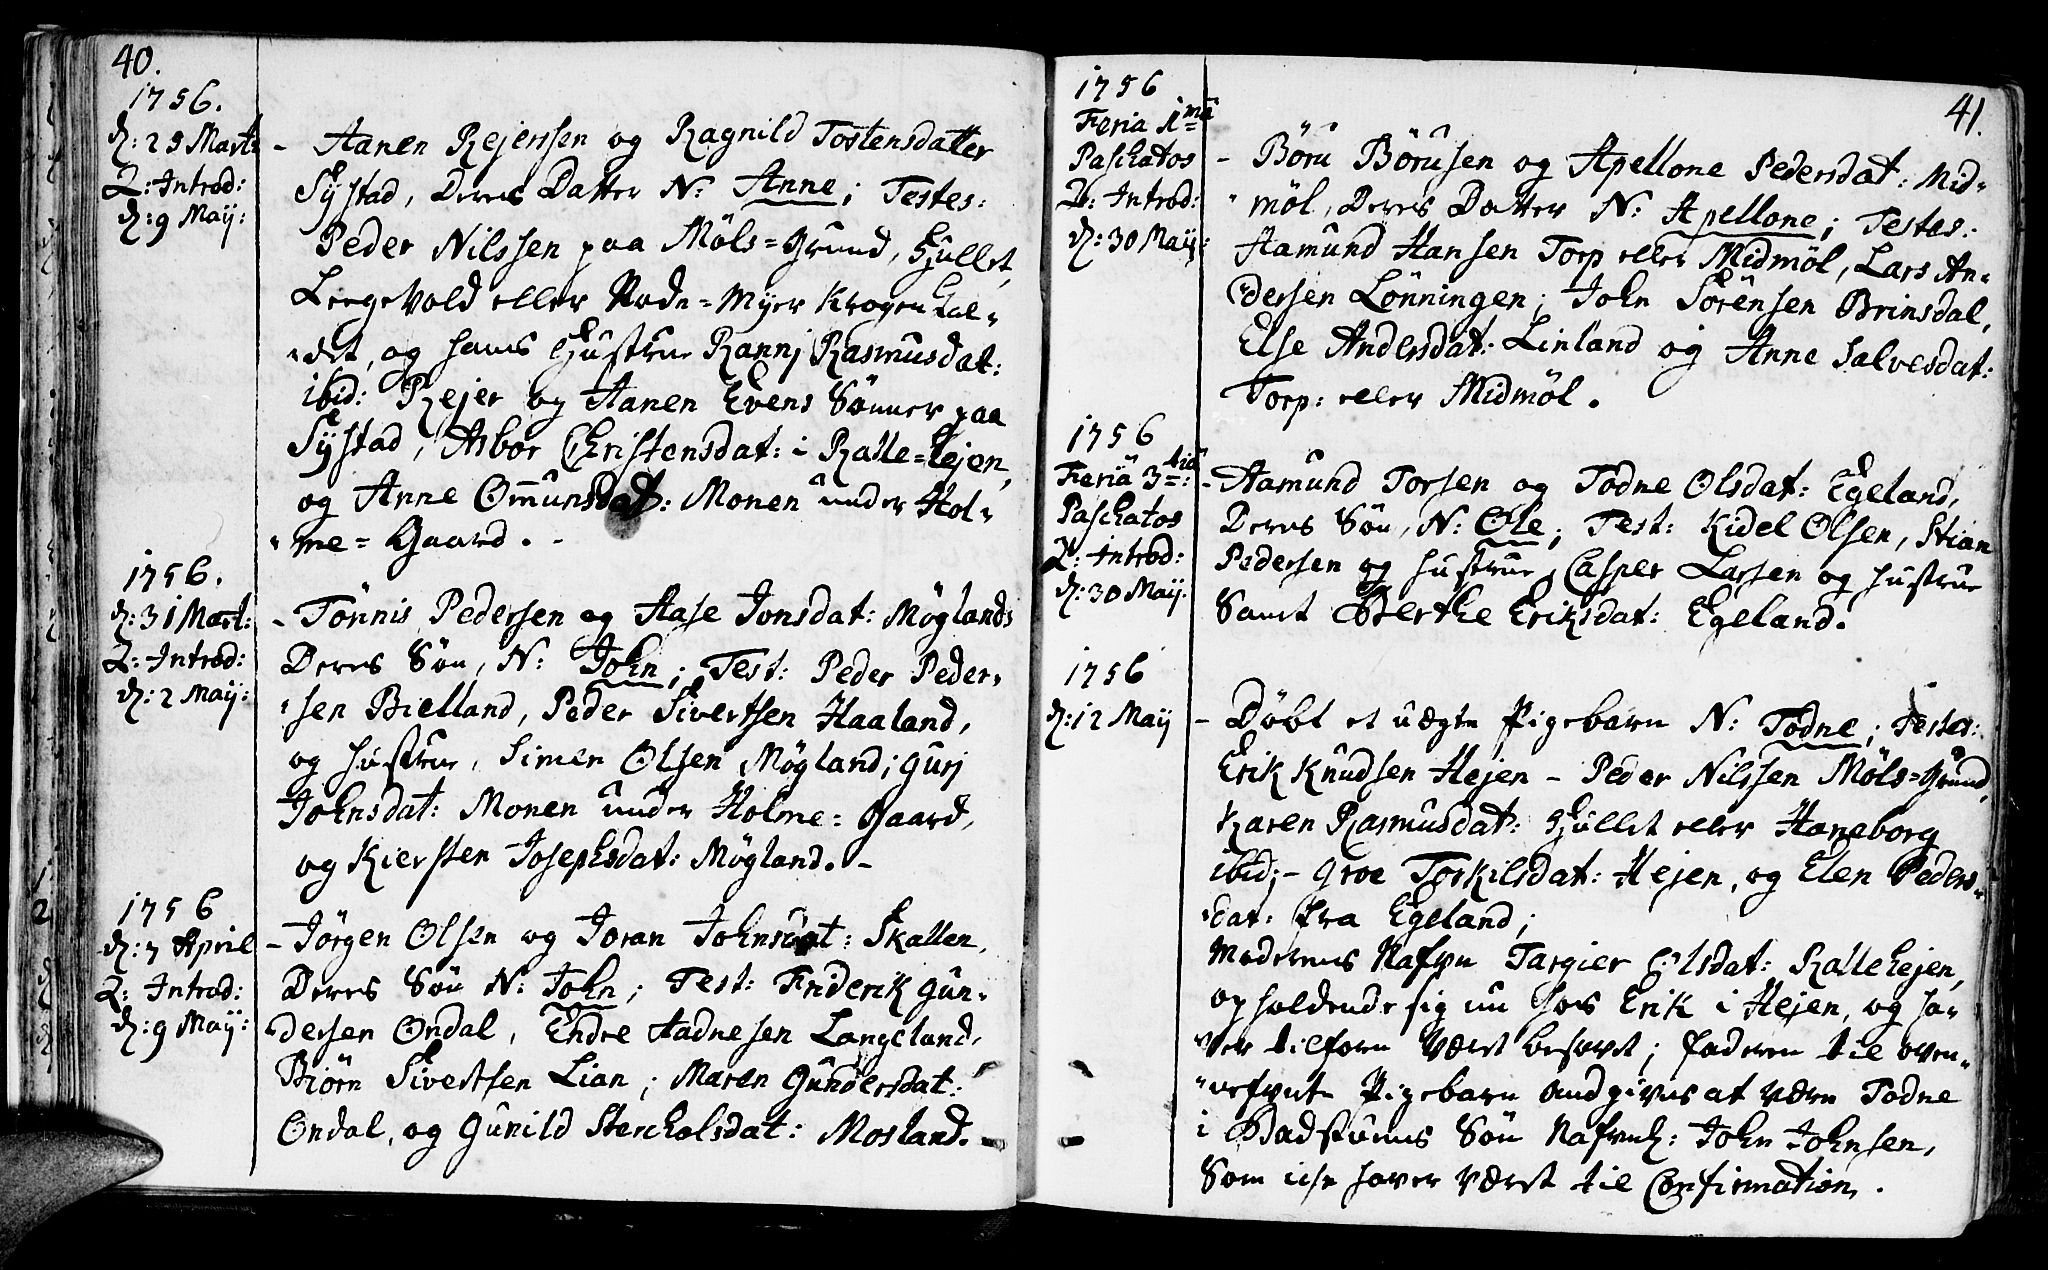 40.
1756.
d: 29 Mart:
2: Introd:
d: 9 Maÿ:
- Aanen Rejerssen og Ragnild Tostensdatter
Sÿstad, Deres Datter N: Anne; Testes:
Peder Nilssen paa Möls=Grund, Hullet,
Leegevold eller Rode=Myer Krogen kal„
„det, og hans Hustrue Rannj Rasmusdat:
ibid: Rejer og Aanen Evens Sönner paa
Sÿstad, Asbor Christensdat: i Kalle=hejen,
og Anne Omunsdat: Monen under Hol„
„me=Gaard. -
1756.
d: 31 Mart:
2: Introd:
d: 2 Maÿ:
- Tönnis Pedersen og Aase Jonsdat: Möglands
Deres Sön, N: John; Test: Peder Peder„
„sen Bielland, Peder Sivertsen Haaland,
og hustrue, Simen Olsen Mögland; Gurj
Johnsdat: Monen under Holme=Gaard,
og Kiersten Josephsdat: Mögland. -
1756
d: 7 April
2: Introd:
d: 9 Maÿ:
- Jörgen Olsen og Joran Johnsdat: Skallen,
Deres Sön N: John; Test: Friderik Gun„
dersen Ondal, Endre Aadnesen Langeland,
Biörn Sivertsen Lian; Maren Gundersdat:
Ondal, og Gunild Stercholsdat: Mosland.
41.
1756
Feria 1ma
Paschatos
2: Introd:
d: 30 Maÿ:
- Böru Börusen og Apellone Pedersdat: Mid„
„möl, Deres Datter N: Apellone; Testes:
Aamund Hansen Torp eller Midmöl, Lars An„
dersen Lönningen; John Sörensen Brinsdal,
Else Andersdat: Linland og Anne Salvesdat:
Torp: eller Midmöl.
1756
Feria 3tia:
Paschatos
2: Introd:
d: 30 Maÿ.
- Aamund Torsen og Todne Olsdat: Egeland,
Deres Sön, N: Ole; Test: Kidel Olsen, Stian
Pedersen og hustrue, Casper Larsen og hustrue
Samt Berthe Eriksdat: Egeland.
1756
d: 12 Maÿ
- Döbt et uægte Pigebarn N: Todne; Testes:
Erik Knudsen Hejen - Peder Nilssen Möls=Grund,
Karen Rasmusdat: Hullet eller Haneborg
ibid; - Groe Torkilsdat: Hejen, og Elen Peders„
„dat: fra Egeland;
Moderens Nafn Targier Olsdat: Kallehejen,
opholdende sig nu hos Erik i Hejen, og ha„
ver tilforn været besovet; faderen til oven„
„nefnte Pigebarn andgives at være Todne
i Badstuens Sön Nafnl: John Johnsen,
Som icke haver været til Confirmation.